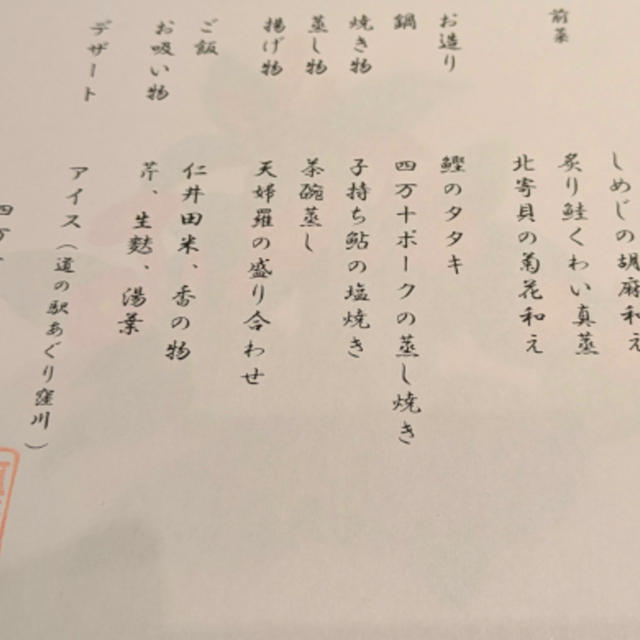 前菜
しめじの胡麻和え
炙り鮭くわい真蒸
北寄貝の菊花和え
お造り
鰹のタタキ
鍋
四万十ポークの蒸し焼き
焼き物
子持ち鮎の塩焼き
蒸し物
茶碗蒸し
揚げ物
天婦羅の盛り合わせ
ご飯
仁井田米、香の物
お吸い物
芹、生麩、湯葉
デザート
アイス（道の駅あぐり窪川）
四万